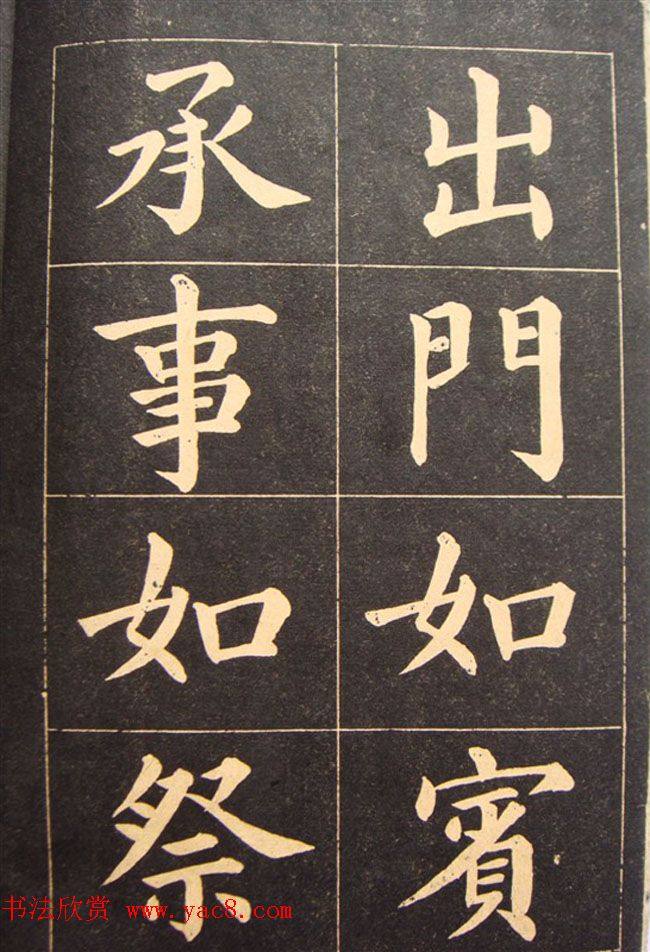 出門如賓
承事如祭
书法欣赏 www.yac8.com